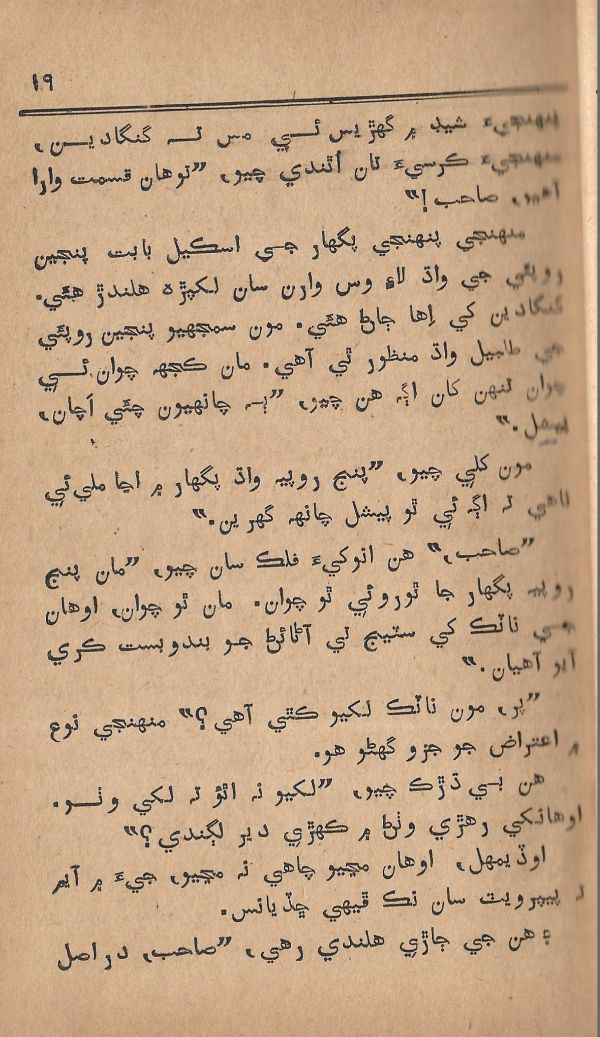 ١٩
پنهنجيءَ شيڊ ۾ گهڙيس ئي مس تہ گنگادين،
پنهنجيءَ ڪرسيءَ تان اٿندي چيو، ”توهان قسمت وارا
آهيو، صاحب!“
منهنجي پنهنجي پگهار جي اسڪيل بابت پنجين
روپئي جي واڌ لاءِ وس وارن سان لکپڙھ هلندڙ هئي.
گنگادين کي اِها ڄاڻ هئي. مون سمجهيو پنجين روپئي
جي طابيل واڌ منظور ٿي آهي. مان ڪجهہ چوان ئي
چوان تنهن کان اڳہ هن چيو، ”ٻہ چانهيون چئي اَچان،
اسپيشل.“
مون کلي چيو، ”پنج روپيہ واڌ پگهار ۾ اڃا ملي ئي
ناهي تہ اڳہ ئي ٿو پيشل چانهہ گهرين.“
”صاحب،“ هن انوکيءَ فلڪ سان چيو، ”مان پنج
روپيہ پگهار جا ٿوروئي ٿو چوان. مان ٿو چوان، اوهان
جي ناٽڪ کي سٽيج تي آڻائڻ جو بندوبست ڪري
آيو آهيان.“
”پر، مون ناٽڪ لکيو ڪٿي آهي؟“ منهنجي نوع
۾ اعتراض جو جزو گهڻو هو.
هن بي ڌڙڪ چيو، ”لکيو نہ اٿؤ تہ لکي وٺو.
اوهانکي رهڙي وٺڻ ۾ ڪهڙي دير لڳندي؟“
اوڏيمهل، اوهان مڃيو چاهي نہ مڃيو، جيءَ ۾ آيم
تہ پيپرويٽ سان نڪ ڦيهي ڇڏيانس.
۽ هن جي ڄاڙي هلندي رهي، ”صاحب، دراصل